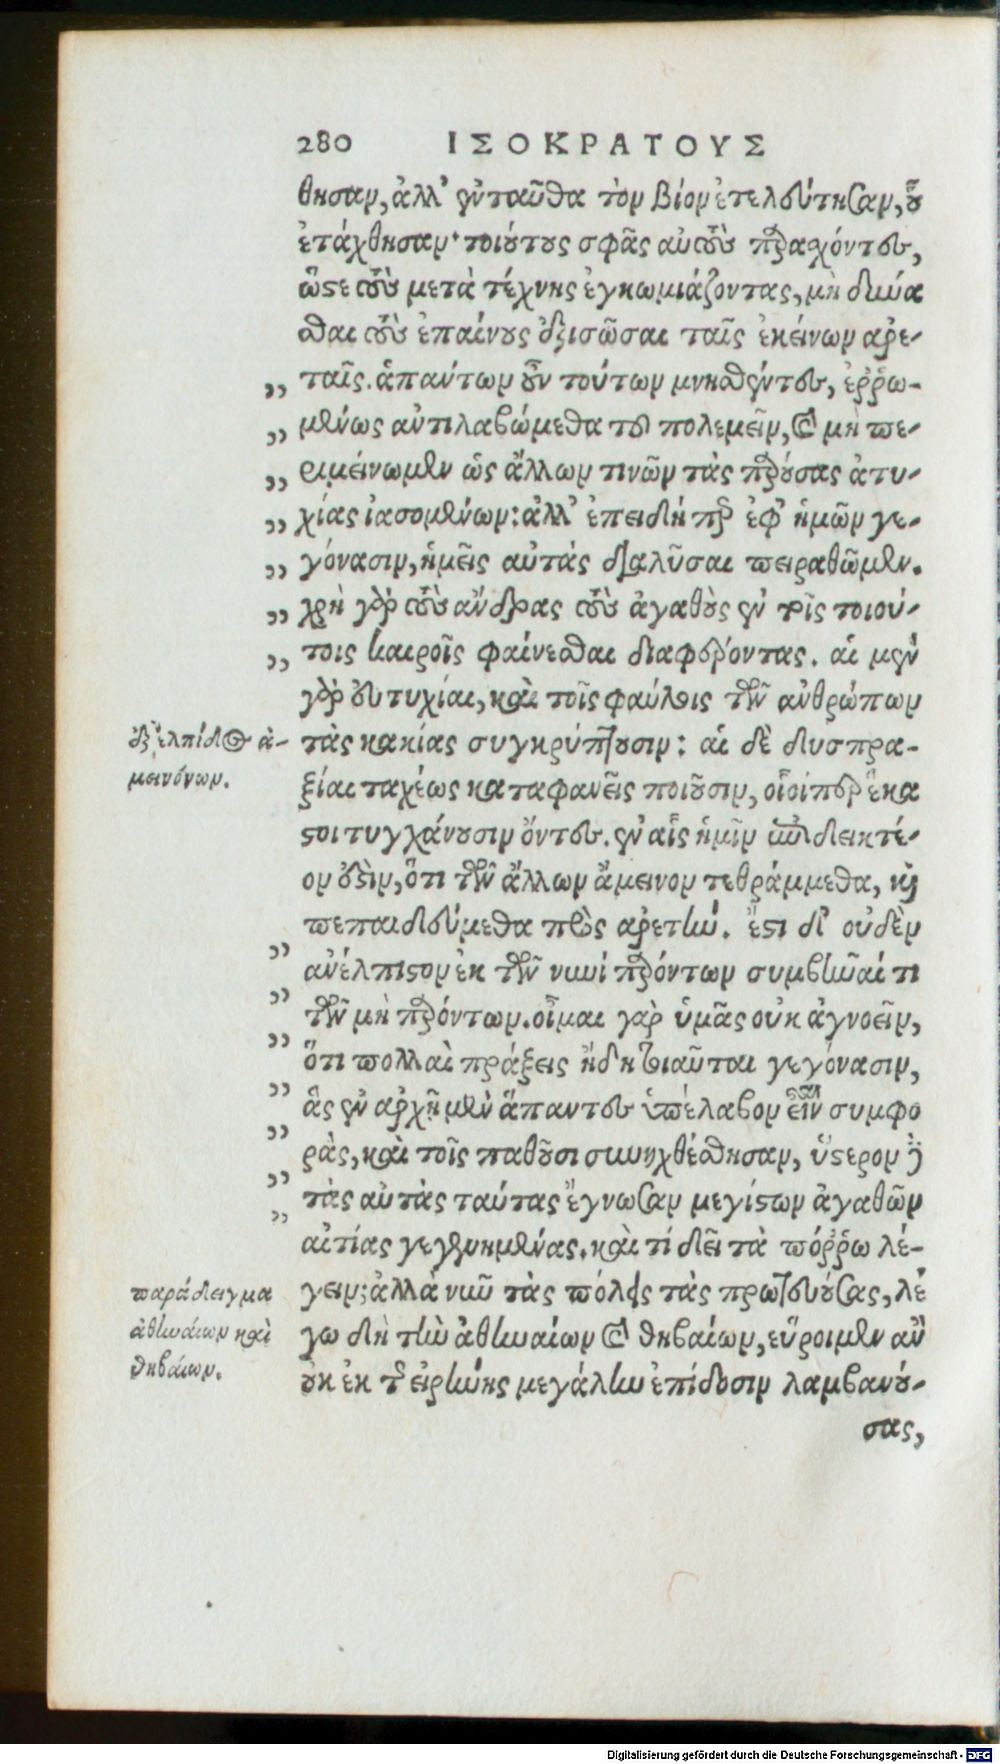 280 ΙΣΟΚΡΑΤΟΥΣ
θησαν, ἀλλ' ἐνταῦθα τὸν βίον ἐτελεύτησαν, οὗ
ἐτάχθησαν· τοιούτους σφᾶς αὐτοὺς παρασχόντες,
ὥστε τοὺς μετὰ τέχνης ἐγκωμιάζοντας, μὴ δύνα
σθαι τοὺς ἐπαίνους ἐξισῶσαι ταῖς ἐκείνων ἀρε-
„ ταῖς. ἁπάντων οὖν τούτων μνησθέντες, ἐῤῥω-
„ μένως ἀντιλαβώμεθα τοῦ πολεμεῖν, καὶ μὴ πε-
„ ριμείνωμεν ὡς ἄλλων τινῶν τὰς παρούσας ἀτυ-
„ χίας ἰασομένων: ἀλλ' ἐπειδήπερ ἐφ' ἡμῶν γε-
„ γόνασιν, ἡμεῖς αὐτὰς διαλῦσαι πειραθῶμεν.
„ χρὴ γὰρ τοὺς ἄνδρας τοὺς ἀγαθοὺς ἐν τοῖς τοιού-
„ τοις καιροῖς φαίνεσθαι διαφέροντας. αἱ μὲν
γὰρ εὐτυχίαι, καὶ τοῖς φαύλοις τῶν ἀνθρώπων
ἐξ ἐλπίδος ἀ-
μεινόνων.
τὰς κακίας συγκρύπτουσιν: αἱ δὲ δυσπρα-
ξίαι ταχέως καταφανεῖς ποιοῦσιν, οἷοίπερ ἕκα
στοι τυγχάνουσιν ὄντες. ἐν αἷς ἡμῖν ἐπιδεικτέ-
ον ἐστὶν, ὅτι τῶν ἄλλων ἄμεινον τεθράμμεθα, καὶ
πεπαιδεύμεθα πρὸς ἀρετήν. ἔστι δ' οὐδὲν
„ ἀνέλπιστον ἐκ τῶν νυνὶ παρόντων συμβῆναί τι
„ τῶν μὴ παρόντων. οἶμαι γὰρ ὑμᾶς οὐκ ἀγνοεῖν,
„ ὅτι πολλαὶ πράξεις ἤδη τοιαῦται γεγόνασιν,
„ ἃς ἐν ἀρχῇ μὲν ἅπαντες ὑπέλαβον εἶναι συμφο
„ ρὰς, καὶ τοῖς παθοῦσι συνηχθέσθησαν, ὕστερον δὲ
„ τὰς αὐτὰς ταύτας ἔγνωσαν μεγίστων ἀγαθῶν
„ αἰτίας γεγενημένας. καὶ τί δεῖ τὰ πόῤῥω λέ-
παράδειγμα
ἀθηναίων καὶ
θηβαίων.
γειν; ἀλλὰ νῦν τὰς πόλεις τὰς πρωτευούσας, λέ
γω δὴ τὴν ἀθηναίων καὶ θηβαίων, εὕροιμεν ἂν
οὐκ ἐκ τῆς εἰρήνης μεγάλην ἐπίδοσιν λαμβανού-
σας,
Digitalisierung gefördert durch die Deutsche Forschungsgemeinschaft - DFG